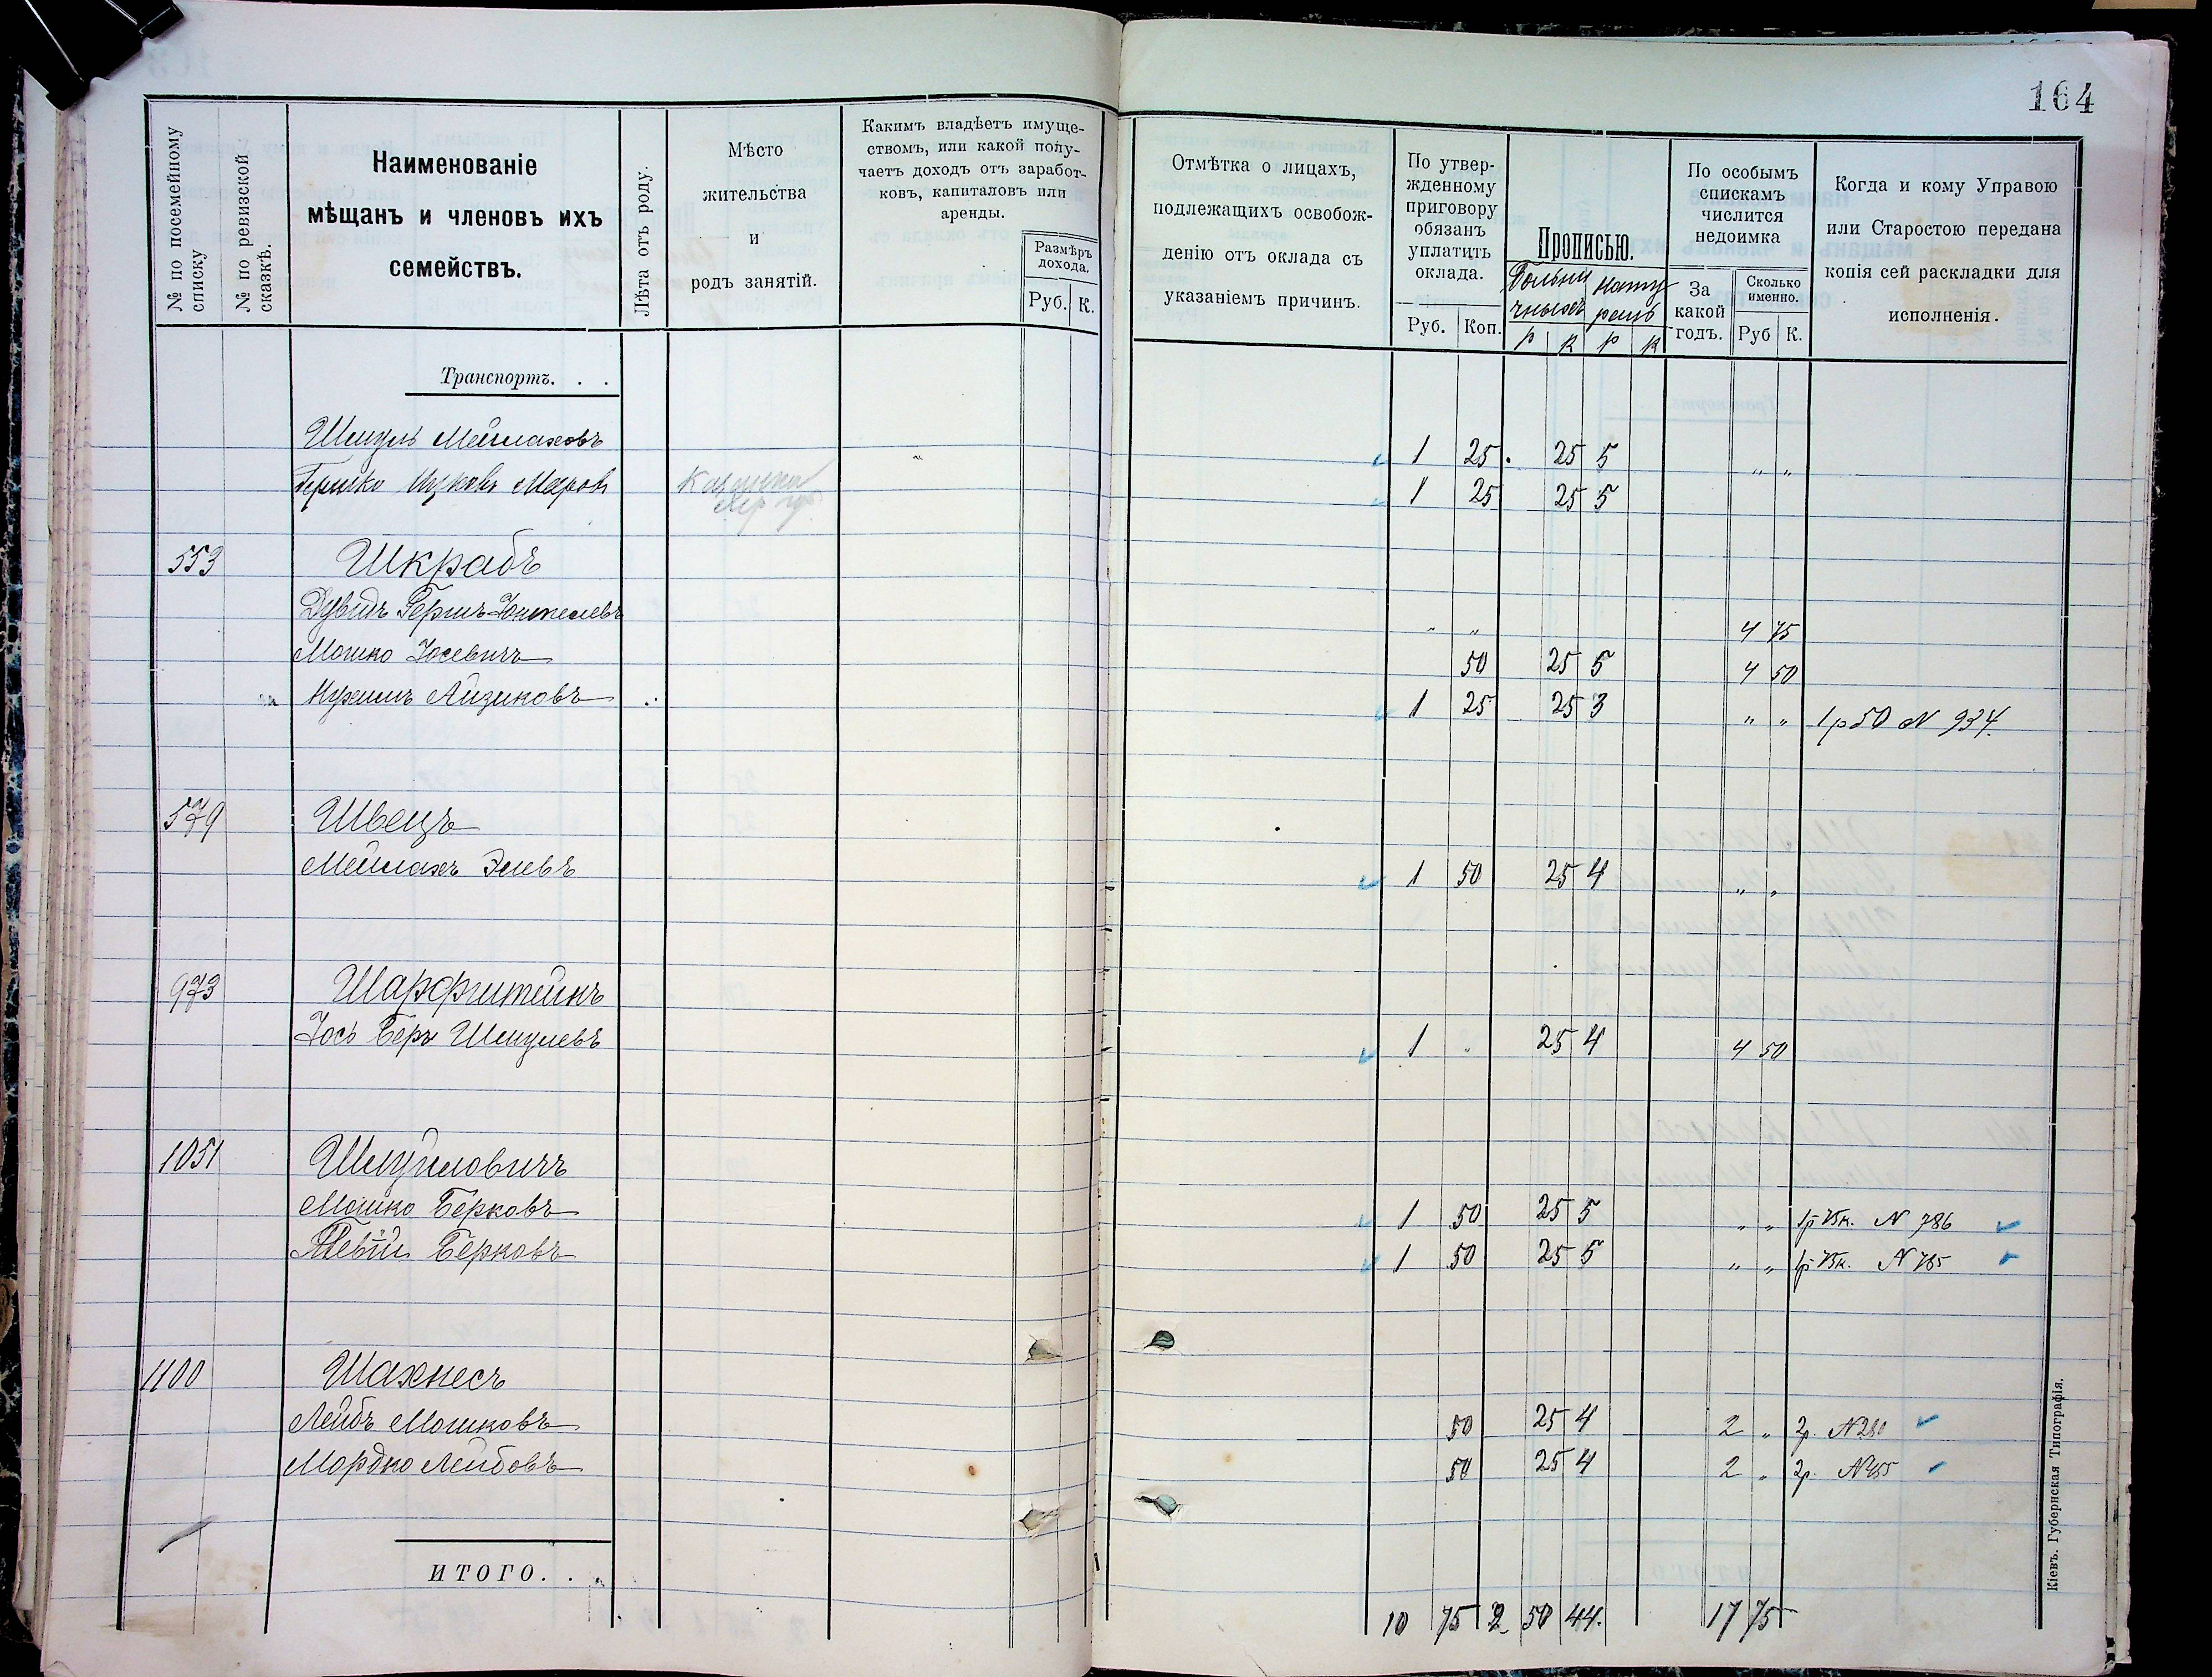 164
№ по посемейному списку
№ по ревизской сказкѣ.
Наименованіе
мѣщанъ и членовъ ихъ
семействъ.
Лѣта отъ роду.
Мѣсто
жительства
и
родъ занятій.
Какимъ владѣетъ имуще-
ствомъ, или какой полу-
чаетъ доходъ отъ заработ-
ковъ, капиталовъ или
аренды.
Размѣръ
дохода.
Руб. К.
Отмѣтка о лицахъ,
подлежащихъ освобож-
денію отъ оклада съ
указаніемъ причинъ.
По утвер-
жденному
приговору
обязанъ
уплатить
оклада.
Руб. Коп.
Прописью.
р к р к
По особымъ
спискамъ
числится
недоимка
За
какой
годъ.
Сколько
именно.
Руб К.
Когда и кому Управою
или Старостою передана
копія сей раскладки для
исполненія.
Транспортъ. . .
Шмуль Мейлаховъ 1 25 25 5 " "
Гершко Ицковъ 1 25 25 5
553 Шкрабъ
Дувидъ Гершъ " " 4 75
Мошко Іосевичъ 50 25 5 4 50
Нухимъ Айзиковъ 1 25 25 3 " " 1р 50 N 934.
579 Швецъ
Мейлахъ Элевъ 1 50 25 4 " "
973 Шарфштейнъ
Іось Беръ Шмулевъ 1 " 25 4 4 50
1051 Шмуйловичъ
Мошко Берковъ 1 50 25 5 " " 1р 75к. N 786
Берковъ 1 50 25 5 " " 1р 75к. N 785
1100 Шахнесъ
Лейбъ Мошковъ 50 25 4 2 " 2р. N 280
Мордко Лейбовъ 50 25 4 2 " 2р.
ИТОГО. . .
10 75 2 50 44. 17 75
Кіевъ. Губернская Типографія.